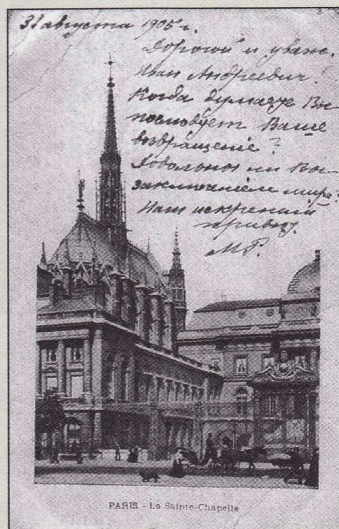 31 августа 1905 г.
Дорогой и уваж.
Иван Андреевич!
Когда думаете Вы
последует Ваше
возвращение?
Довольны ли Вы
заключением мира?
Наш искренний
привет.
МГ.
PARIS - La Sainte-Chapelle